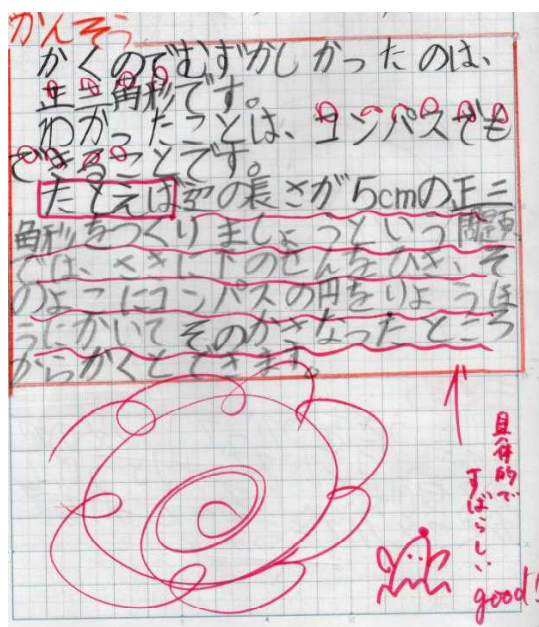 かんそう
かくのでむずかしかったのは、
正三角形です。
わかったことは、コンパスでも
できることです。
たとえば辺の長さが5cmの正三
角形をつくりましょうという問題
では、さきに下のせんをひき、そ
のよこにコンパスの円をりょうほ
うにかいてそのかさなったところ
からかくとできます。
具体的で
すばらしい
good!